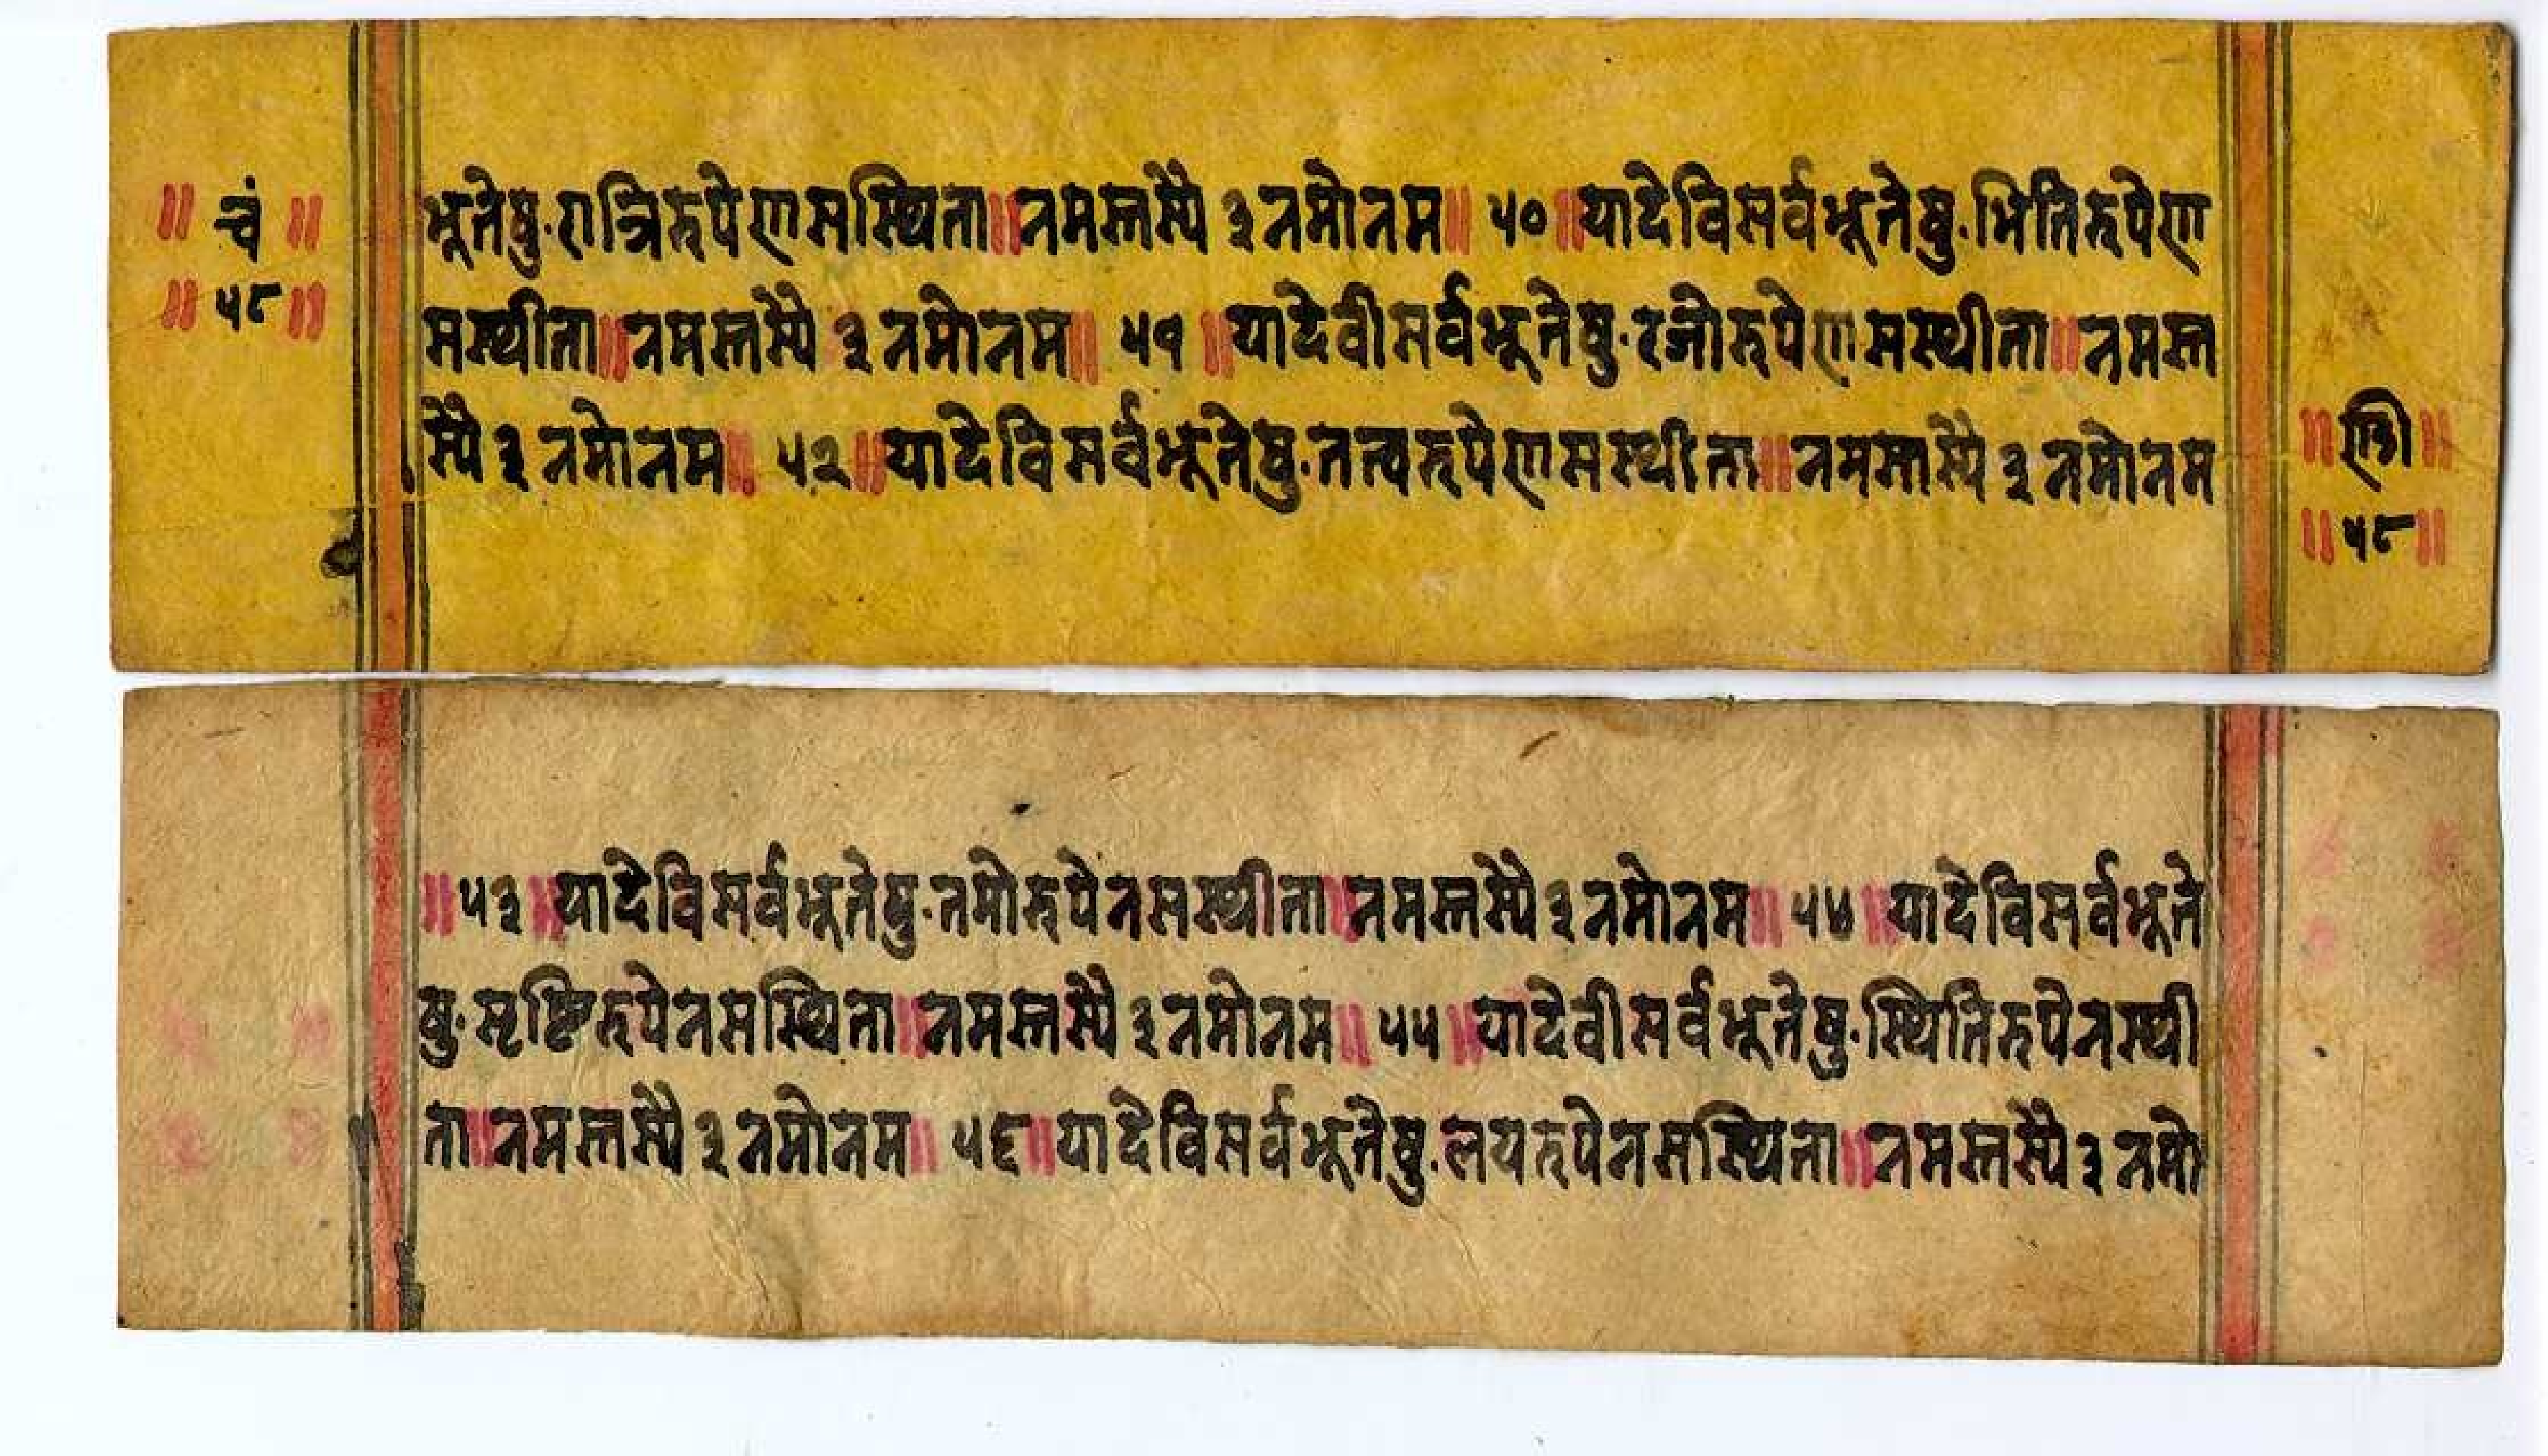 ॥ चं ॥
॥ ५८ ॥
भूतेषु·रात्रिरुपेणसस्थिता॥नमस्तस्यै ३ नमोनम॥ ५० ॥यादेविसर्वभूतेषु·भितिरुपेण
सस्थीता॥नमस्तस्यै ३ नमोनम॥ ५१ ॥यादेवीसर्वभूतेषु·रजोरुपेणसस्थीता॥नमस्त
स्यै ३ नमोनम॥ ५२॥यादेविसर्वभूतेषु·तत्वरुपेणसस्थीता॥नमस्तस्यै ३ नमोनम
॥ ५८ ॥
॥५३॥यादेविसर्वभूतेषु·तमोरुपेनसस्थीता॥नमस्तस्यै ३ नमोनम॥ ५४ ॥यादेविसर्वभूते
षु·सृष्टिरुपेनसस्थिता॥नमस्तस्यै ३ नमोनम॥ ५५ ॥यादेवीसर्वभूतेषु·स्थितिरुपेनस्थी
ता॥नमस्तस्यै ३ नमोनम॥ ५६॥यादेविसर्वभूतेषु·लयरुपेनसस्थिता॥नमस्तस्यै ३ नमो